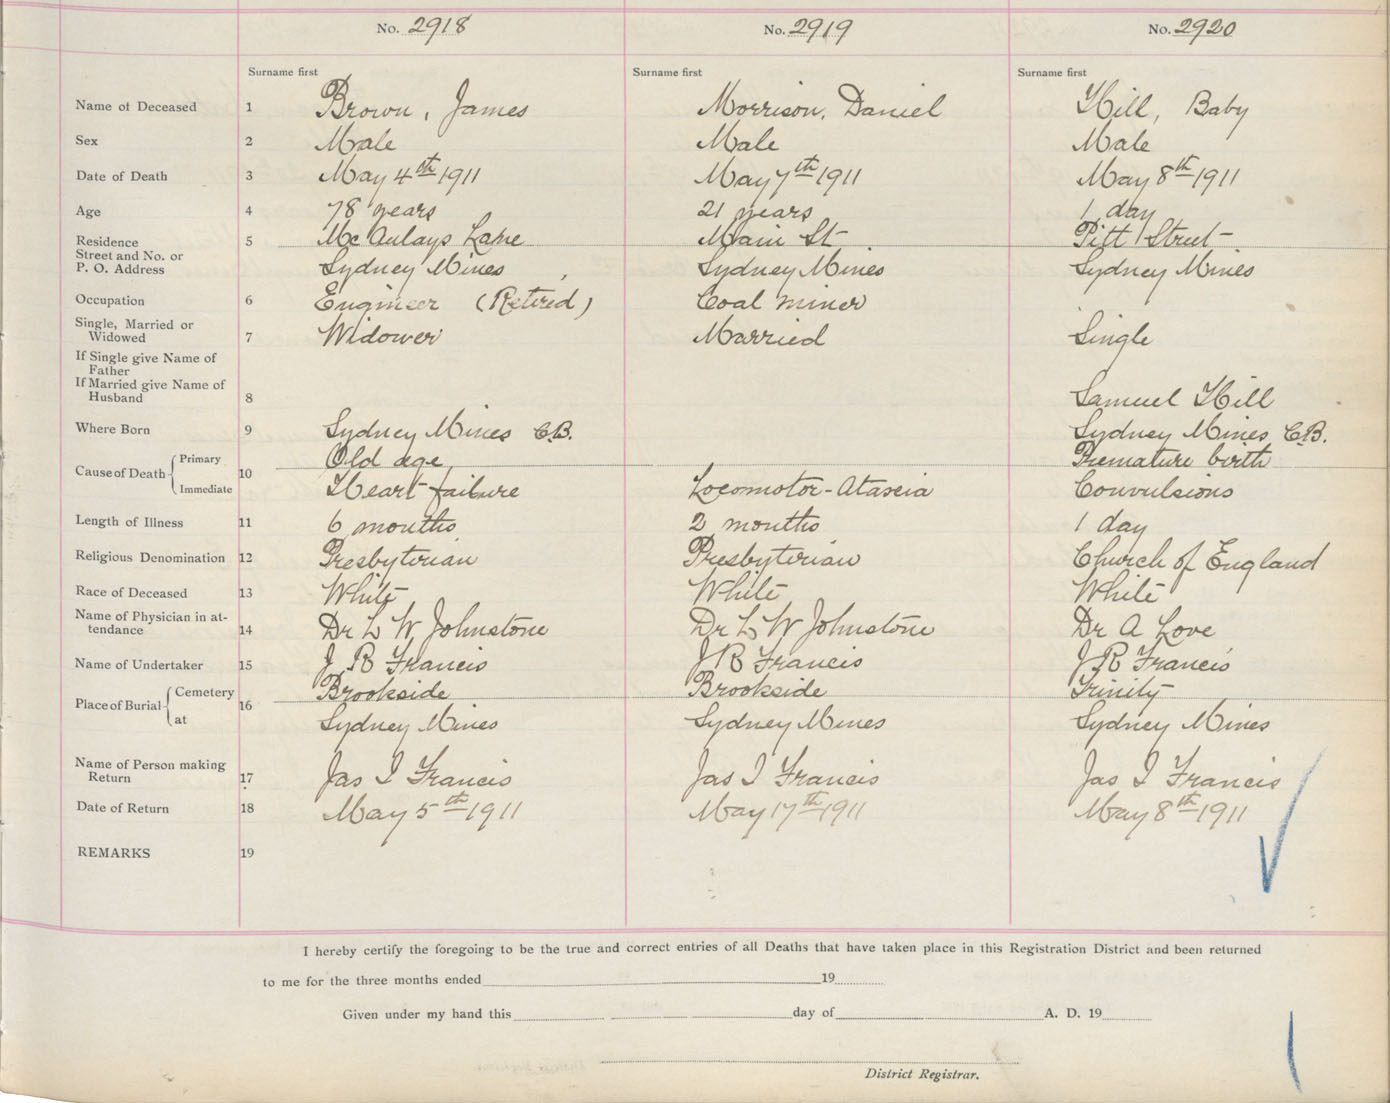 No. 2918 No. 2919 No. 2920
Surname first Surname first Surname first
Name of Deceased 1 Brown, James Morrison, Daniel Hill, Baby
Sex 2 Male Male Male
Date of Death 3 May 4th 1911 May 7th 1911 May 8th 1911
Age 4 78 years 21 years 1 day
Residence 5 McAulays Lane Main St. Pitt Street
Street and No. or
P. O. Address Sydney Mines, Sydney Mines Sydney Mines
Occupation 6 Engineer (Retired) Coal miner
Single, Married or
Widowed 7 Widower Married Single
If Single give Name of
Father
If Married give Name of
Husband 8 Samuel Hill
Where Born 9 Sydney Mines C.B. Sydney Mines C.B.
Cause of Death Primary 10 Old age Premature birth
Immediate Heart failure Locomotor-Atascia Convulsions
Length of Illness 11 6 months 2 months 1 day
Religious Denomination 12 Presbyterian Presbyterian Church of England
Race of Deceased 13 White White White
Name of Physician in at-
tendance 14 Dr L W Johnstone Dr L W Johnstone Dr A Love
Name of Undertaker 15 J R Francis J R Francis J R Francis
Place of Burial Cemetery 16 Brookside Brookside Trinity
at Sydney Mines Sydney Mines Sydney Mines
Name of Person making
Return 17 Jas I Francis Jas I Francis Jas I Francis
Date of Return 18 May 5th 1911 May 17th 1911 May 8th 1911
REMARKS 19
I hereby certify the foregoing to be the true and correct entries of all Deaths that have taken place in this Registration District and been returned
to me for the three months ended 19
Given under my hand this day of A. D. 19
District Registrar.